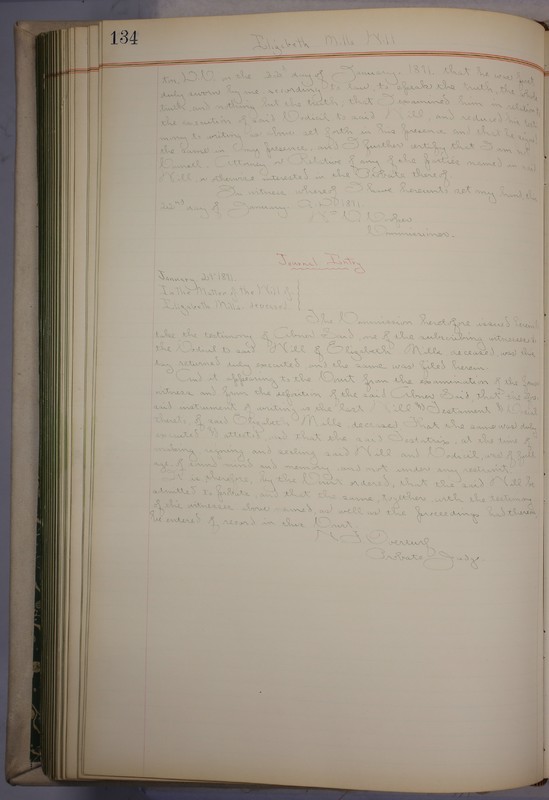 134
Elizabeth Mills Will
on the 22d day of January, 1891, that he was first
duly sworn by me according to law to speak the truth, the whole
truth and nothing but the truth; that I examined him in relation to
the execution of said Codicil to said Will, and reduced his testi
mony to writing as above set forth in his presence and that he signed
the same in my presence, and I further certify that I am not
Counsel, Attorney or Relative of any of the parties named in said
Will or otherwise interested in the Probate thereof.
In witness whereof I have hereunto set my hand the
22nd day of January A.D. 1891.
Commissioner.
Journal Entry
January 1891
In the Matter of the Will of
Elizabeth Mills deceased
The Commission heretofore issued herein to
take the testimony of one of the subscribing witnesses to
the Codicil to said Will of Elizabeth Mills deceased was this
day returned duly executed and the same was filed herein.
And it appearing to the Court from the examination of the
witness and from the deposition of the said that the
said instrument of writing is the last Will & Testament & Codicil
thereto of said Elizabeth Mills deceased that the same was duly
executed & attested and that the said Testatrix, at the time of
making, signing and sealing said Will and Codicil, was of full
age, of sound mind and memory, and not under any restraint.
It is therefore, by the Court ordered, that the said Will be
admitted to Probate, and that the same, together with the testimony
of the witnesses above named, as well as the proceedings had therein
be entered of record in this Court.
Probate Judge